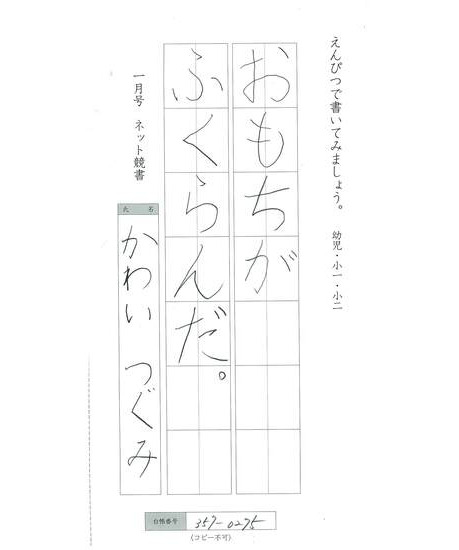 えんぴつで書いてみましょう。 幼児・小一・小二
おもちが
ふくらんだ。
一月号 ネット競書
氏名
かわい つぐみ
台帳番号 357-0275
(コピー不可)